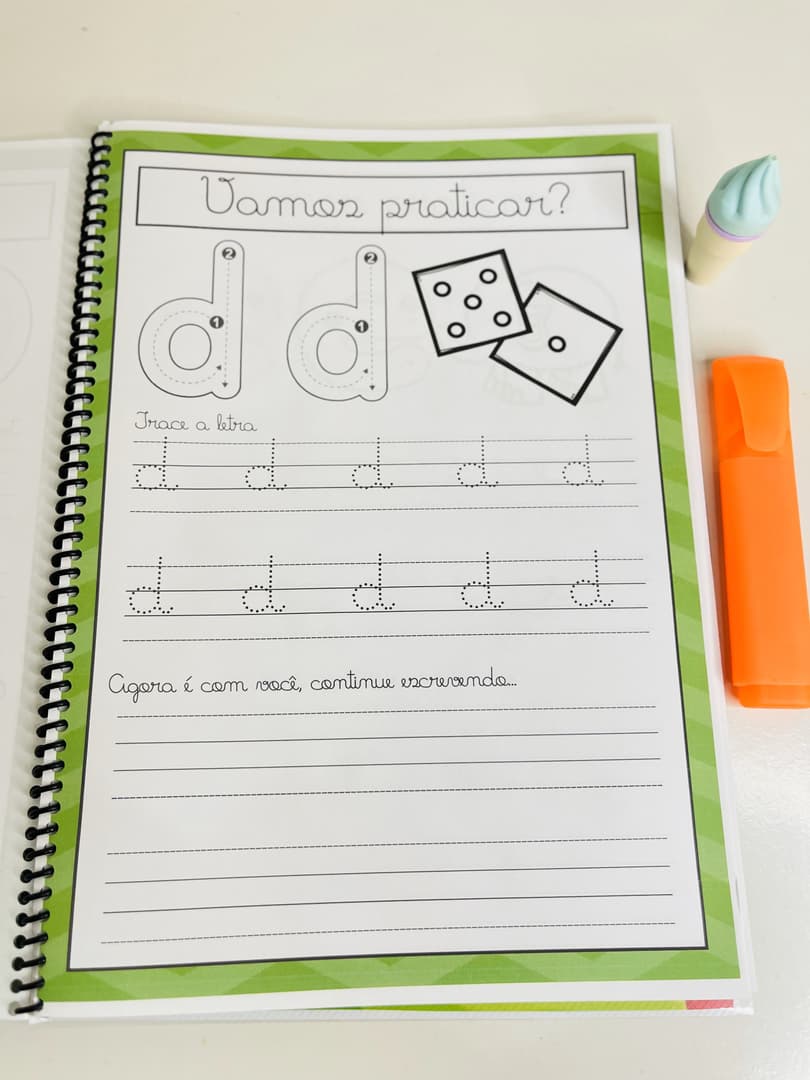 Vamos praticar?
2 2
1 1
d d
Trace a letra
d d d d d
d d d d d
Agora é com você, continue escrevendo...